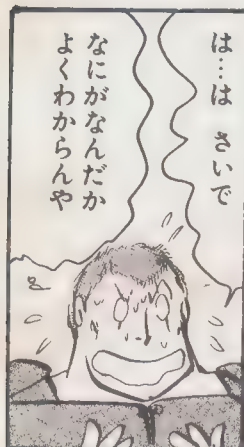 は…は さいで
なにがなんだか
よくわからんや